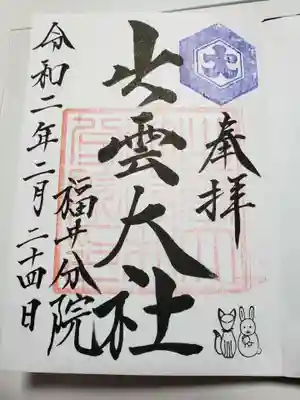 奉拝
出雲大社
福井分院
令和二年二月二十四日